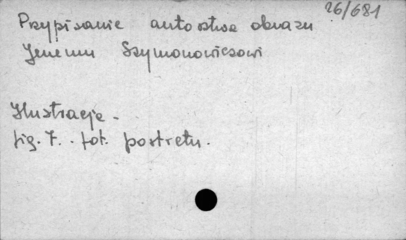 26/681
Przypisanie autorstwa obrazu
Jeremu Szymonowiczowi
Ilustracje -
fig. 7. fot. portretu.